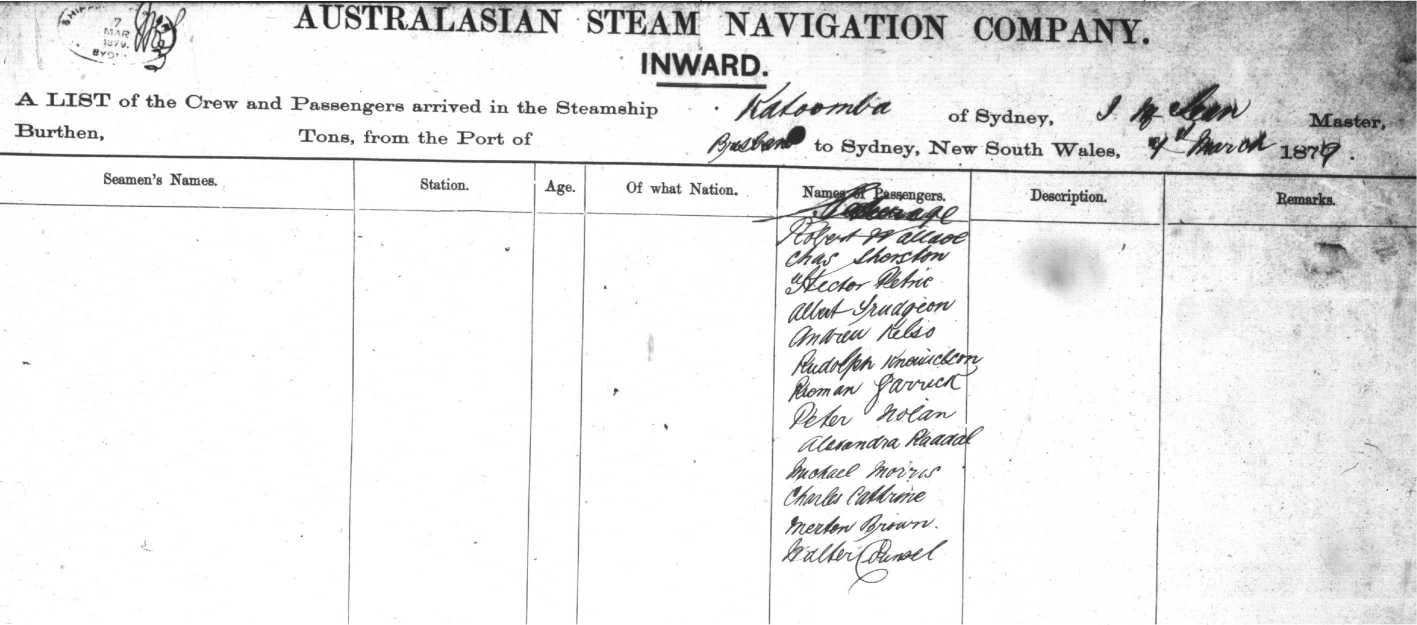 SHIPPI
7
MAR
1879.
SYDN
AUSTRALASIAN STEAM NAVIGATION COMPANY.
INWARD.
A LIST of the Crew and Passengers arrived in the Steamship Katoomba of Sydney, J. Mc Lean Master,
Burthen, Tons, from the Port of Brisbane to Sydney, New South Wales, 7th March 1879.
Seamen's Names. Station. Age. Of what Nation. Names of Passengers. Description. Remarks.
Steerage
Robert Wallace
Chas Shorston
Hector Petrie
Albert Trudgeon
Andrew Kelso
Rudolph
Roman Garrick
Peter Nolan
Alexandra
Michael Morris
Charles Cathrine
Merton Brown.
Walter Counsel